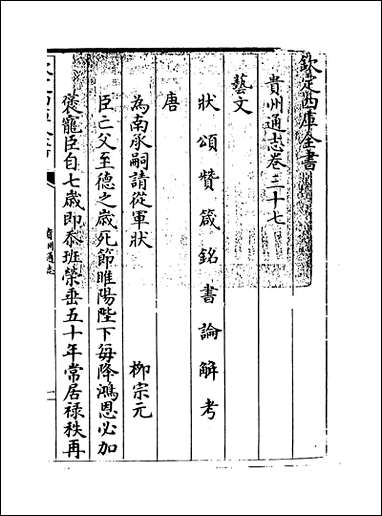 欽定四庫全書
貴州通志卷三十七
藝文
狀 頌 贊 箴 銘 書 論 解 考
唐
為南承嗣請從軍狀 柳宗元
臣亡父至德之歲死節睢陽陛下每降鴻恩必加
褒寵臣自七歲即忝班榮垂五十年常居祿秩再
貴州通志